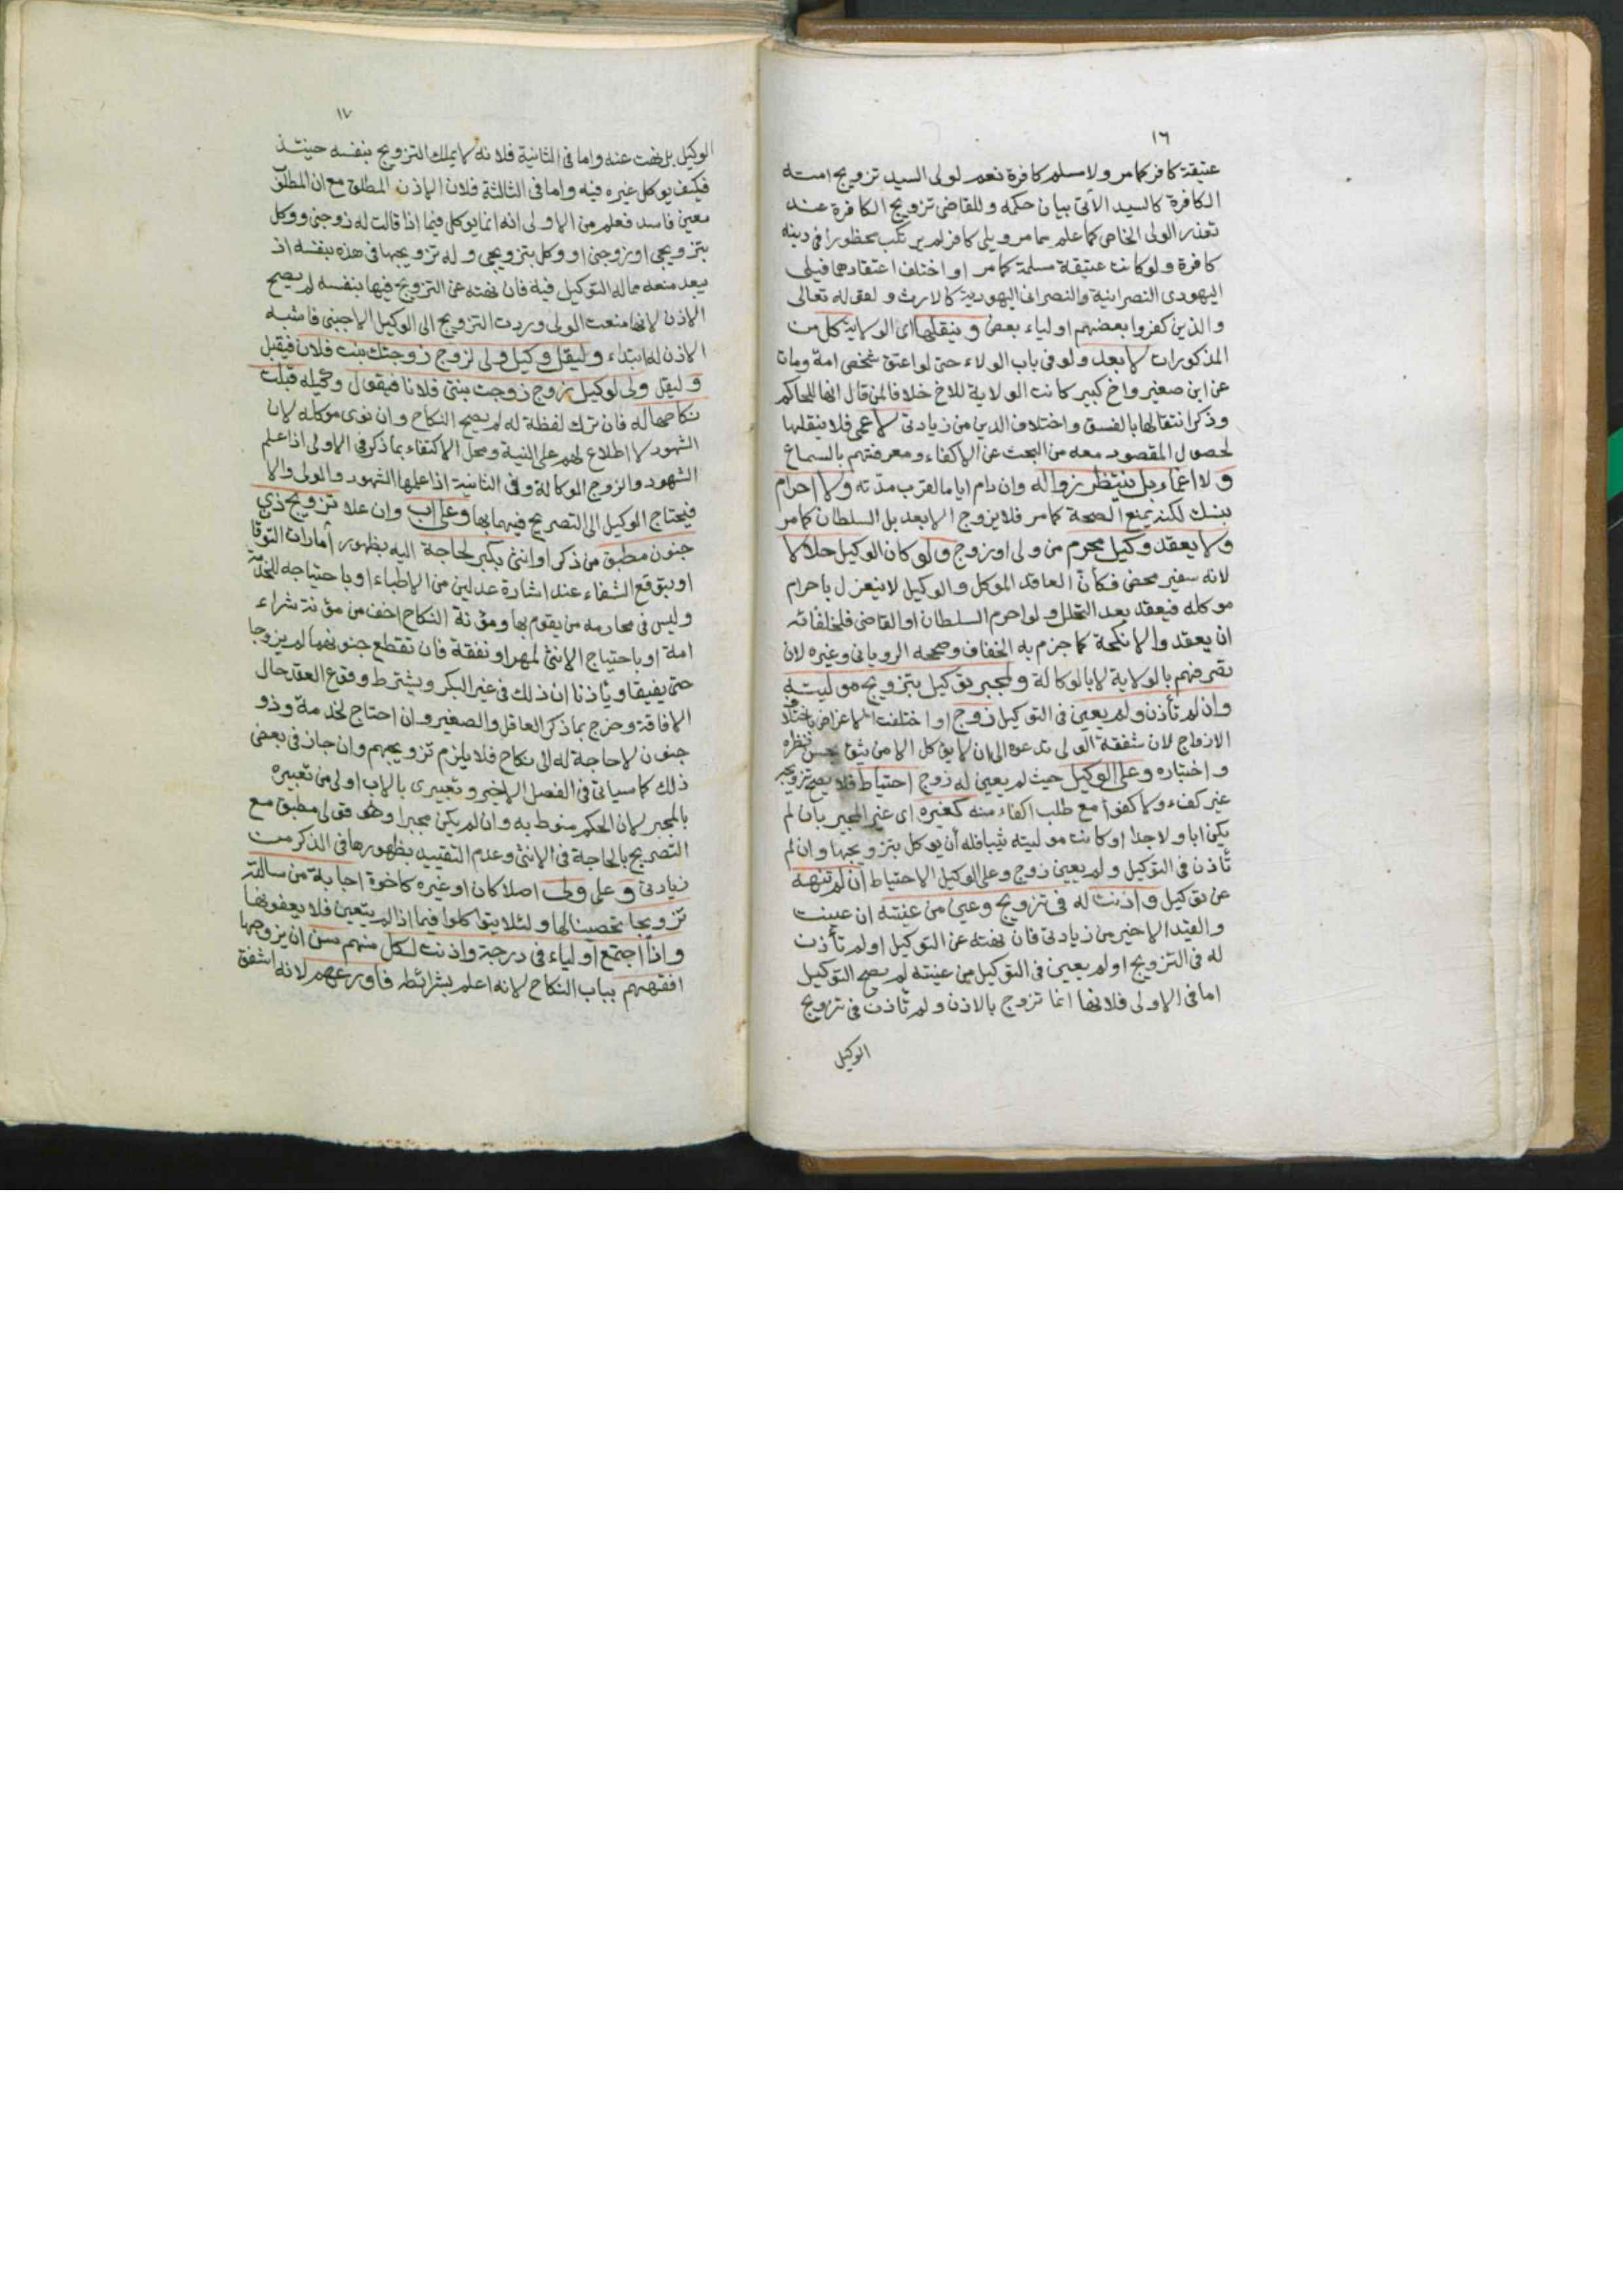 ١٦
عتيقة كافر كما مر ولا مسلم كافرة نعم لولى السيد تزويج امته
الكافرة كالسيد الآتى بيان حكمه وللقاضى تزويج الكافرة عند
تعذر الولى الخاص كما علم مما مر ويلى كافر لم يرتكب محظورا فى دينه
كافرة ولو كانت عتيقة مسلمة كما مر او اختلف اعتقادهما فيلى
اليهودى النصرانية والنصرانى اليهودية كالارث ولقوله تعالى
والذين كفروا بعضهم اولياء بعض وينقلها اى الولاية كل من
المذكورات لابعد ولو فى باب الولاء حتى لو اعتق شخص امة ومات
عن ابن صغير واخ كبير كانت الولاية للاخ خلافا لمن قال انها للحاكم
وذكر انتقالها بالفسق واختلاف الدين من زيادتى لا عمى فلا ينقلها
لحصول المقصود معه من البحث عن الاكفاء ومعرفتهم بالسماع
ولا اغماء بل ينتظر زواله وان دام اياما لقرب مدته ولا احرام
بنسك لكنه يمنع الصحة كما مر فلا يزوج الابعد بل السلطان كما مر
ولا يعقد وكيل محرم من ولى او زوج ولو كان الوكيل حلالا
لانه سفير محض فكأن العاقد الموكل والوكيل لا ينعزل باحرام
موكله فيعقد بعد التحلل ولو احرم السلطان او القاضى فلخلفائه
ان يعقدوا الانكحة كما جزم به الخفاف وصححه الرويانى وغيره لان
تصرفهم بالولاية لا بالوكالة ولمجبر توكيل بتزويج موليته
وان لم تأذن ولم يعين فى التوكيل زوج او اختلفت الاعراض باختلاف
الازواج لان شفقة الولى تدعوه الى ان لا يوكل الا من يثق بحسن نظره
واختباره وعلى الوكيل حيث لم يعين له زوج احتياط فلا يصح تزويجه
غير كفء ولا كفؤا مع طلب اكفاء منه كغيره اى غير المجبر بان لم
يكن ابا ولا جدا او كانت موليته ثيبا فله أن يوكل بتزويجها وان لم
تأذن فى التوكيل ولم يعين زوج وعلى الوكيل الاحتياط ان لم تنهه
عن توكيل واذنت له فى تزويج وعين من عينته ان عينت
والقيد الاخير من زيادتى فان نهته عن التوكيل او لم تأذن
له فى التزويج او لم يعين فى التوكيل من عينته لم يصح التوكيل
اما فى الاولى فلانها انما تزوج بالاذن ولم تأذن فى تزويج
الوكيل
١٧
الوكيل بل نهت عنه واما فى الثانية فلانه لا يملك التزويج بنفسه حينئذ
فكيف يوكل غيره فيه واما فى الثالثة فلان الاذن المطلق مع ان المطلق
معين فاسد فعلم من الاولى انه انما يوكل فيما اذا قالت له زوجنى ووكل
بتزويجى او زوجنى او وكل بتزويجى وله تزويجها فى هذه بنفسه اذ
يبعد منعه مما له التوكيل فيه فان نهته عن التزويج فيها بنفسه لم يصح
الاذن لانها منعت الولى وردت التزويج الى الوكيل الاجنبى فاشبه
الاذن له ابتداء وليقل وكيل ولى لزوج زوجتك بنت فلان فيقبل
وليقل ولى لوكيل زوج زوجت بنتى فلانا فيقول وكيله قبلت
نكاحها له فان ترك لفظة له لم يصح النكاح وان نوى موكله لان
الشهود لا اطلاع لهم على النية ومحل الاكتفاء بما ذكر فى الاولى اذا علم
الشهود والزوج الوكالة وفى الثانية اذا علمها الشهود والولى والا
فيحتاج الوكيل الى التصريح فيهما بها وعلى اب وان علا تزويج ذى
جنون مطبق من ذكر او انثى بكبر لحاجة اليه بظهور أمارات التوقان
او بتوقع الشفاء عند اشارة عدلين من الاطباء او باحتياجه للخدمة
وليس فى محارمه من يقوم بها ومؤنة النكاح اخف من مؤنة شراء
امة او باحتياج الانثى لمهر او نفقة فان تقطع جنونهما لم يزوجا
حتى يفيقا ويأذنا ان ذلك فى غير البكر ويشترط وقوع العقد حال
الافاقة وخرج بما ذكر العاقل والصغير وان احتاج لخدمة وذو
جنون لا حاجة له الى نكاح فلا يلزم تزويجهم وان جاز فى بعض
ذلك كما سياتى فى الفصل الاخير وتعبيرى بالاب اولى من تعبيره
بالمجبر لان الحكم منوط به وان لم يكن مجبرا وهو قولى مطبق مع
التصريح بالحاجة فى الانثى وعدم التقييد بظهورها فى الذكر من
زيادتى وعلى ولى اصلا كان او غيره كاخوة اجابة من سالته
تزويجا تحصينا لها ولئلا يتواكلوا فيما اذا لم يتعين فلا يعفونها
واذا اجتمع اولياء فى درجة واذنت لكل منهم سن ان يزوجها
افقههم بباب النكاح لانه اعلم بشرائطه فاورعهم لانه اشفق